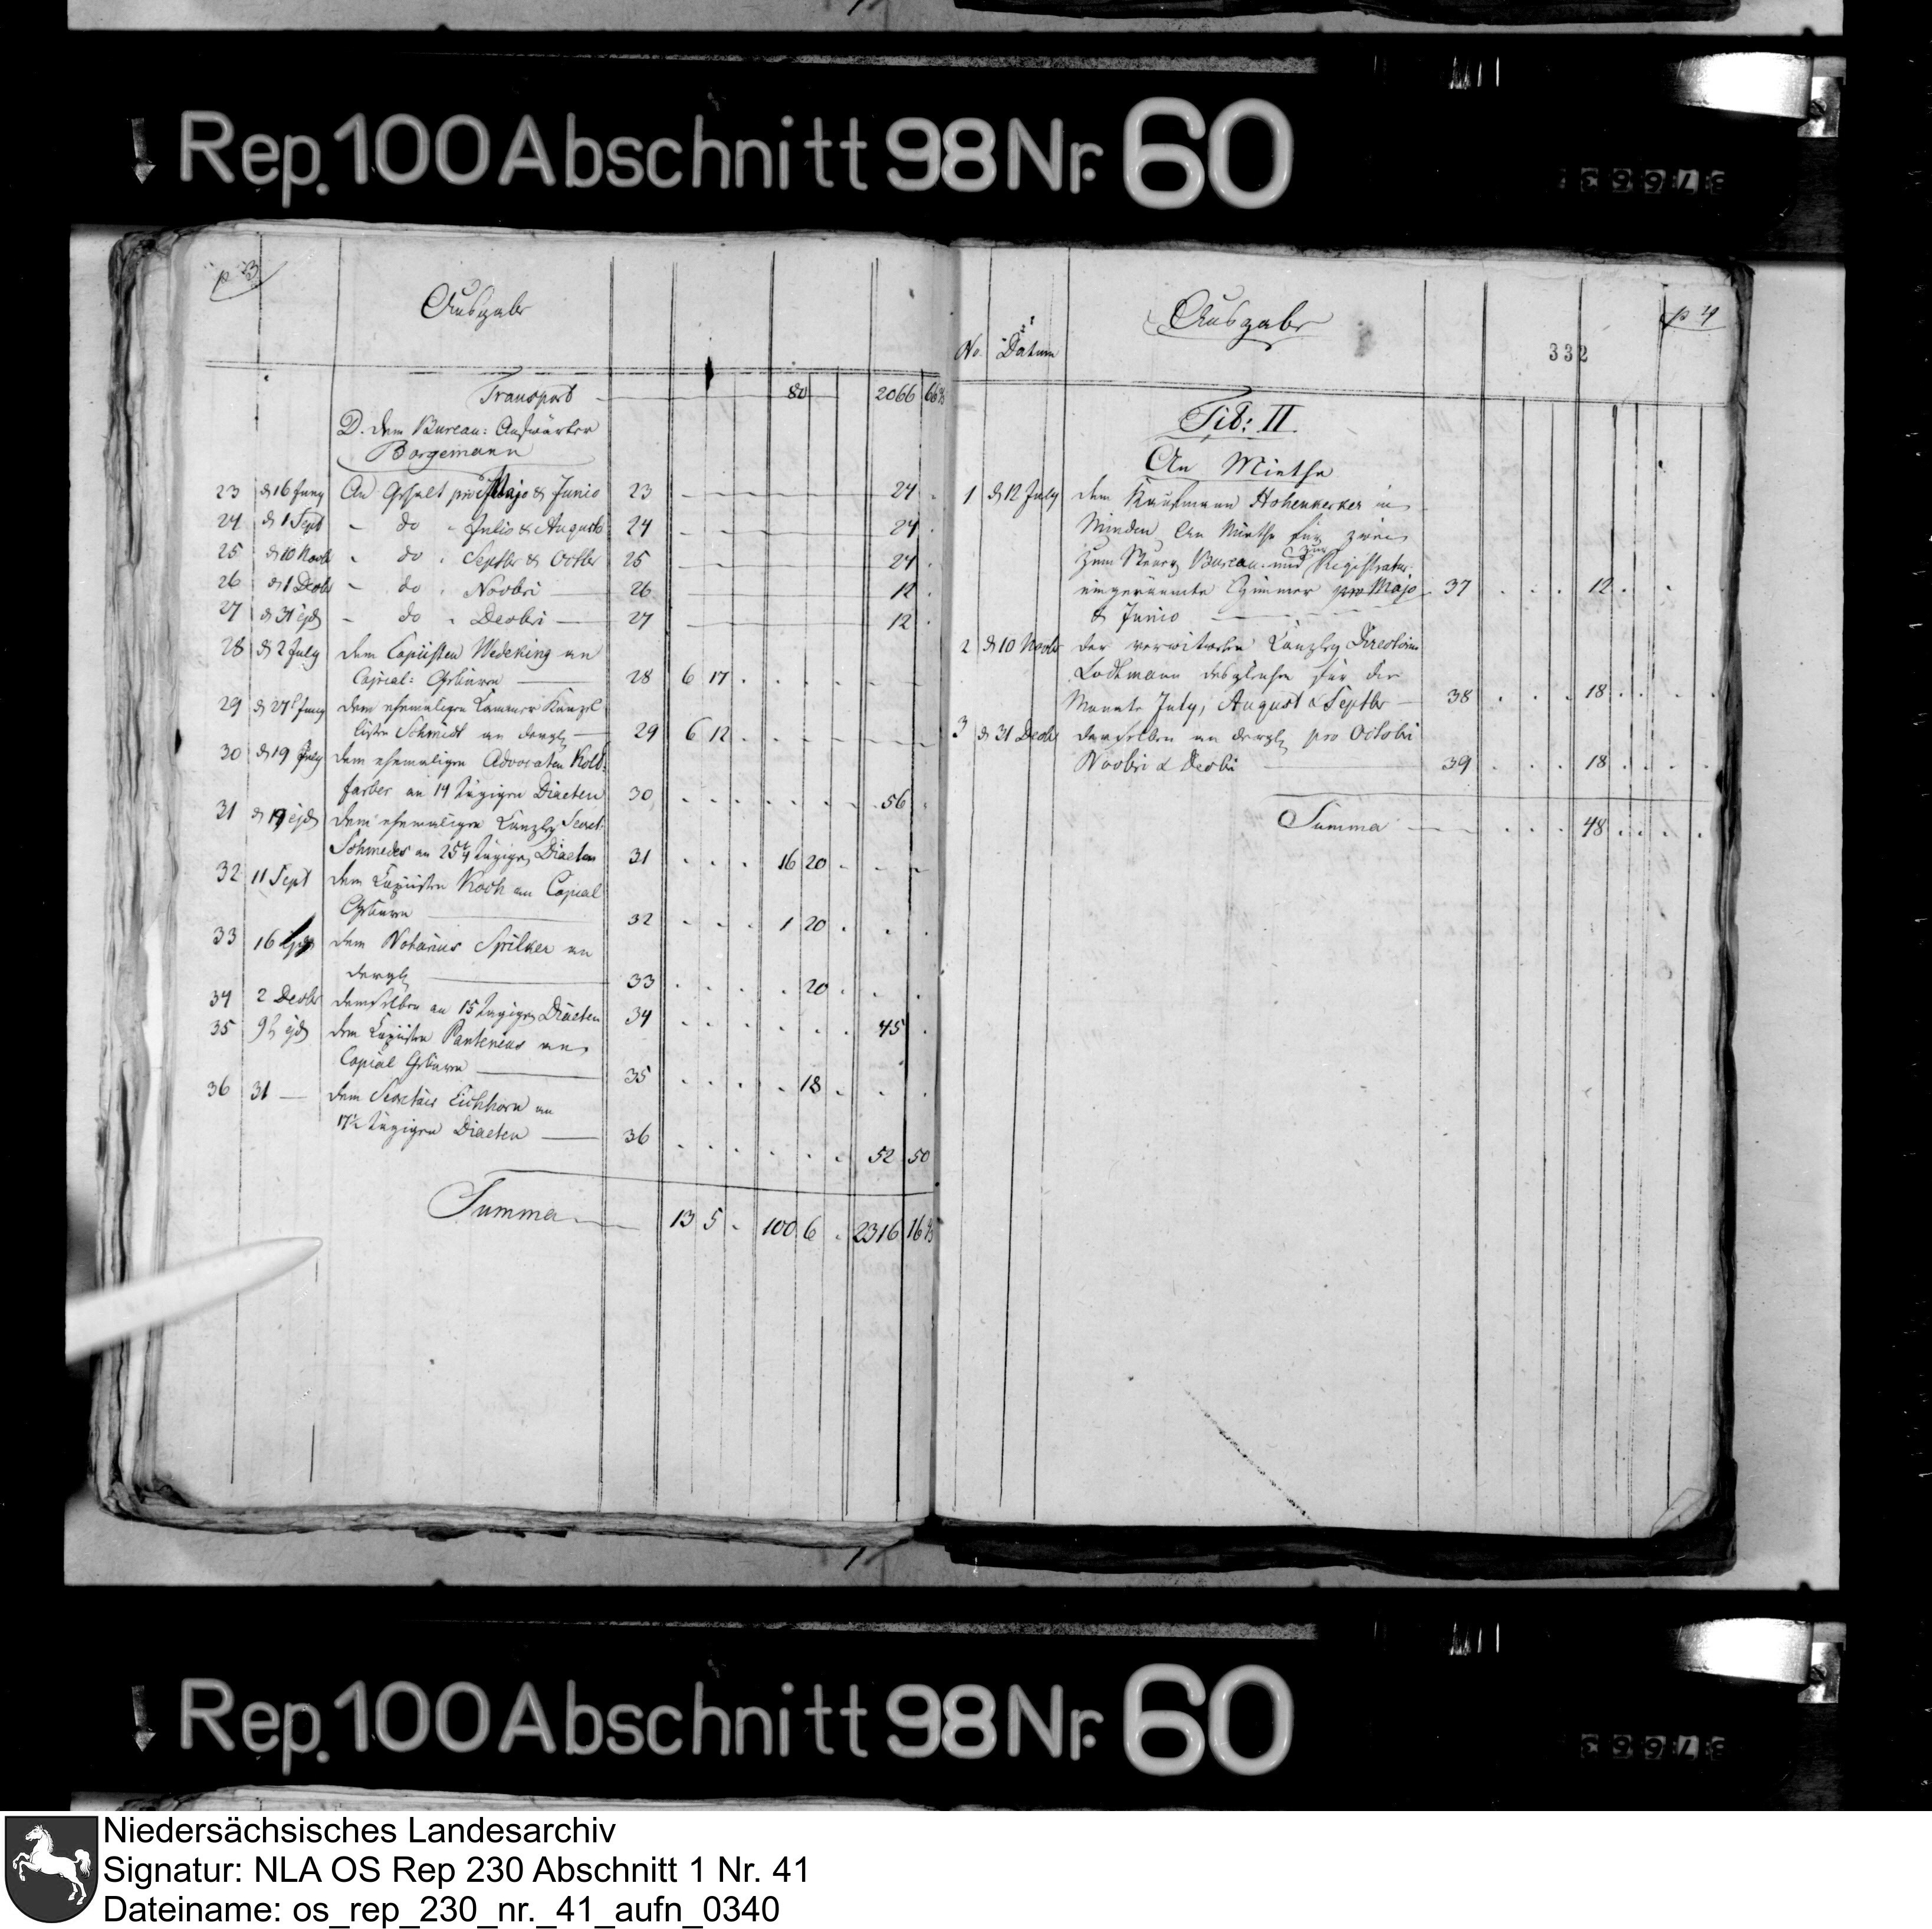 Rep. 100 Abschnitt 98 Nr. 60
p 3
Ausgabe
Transport — 80 2066 66
D. dem Bureau: Aufwärter
Borgemann
23 d 16 Juny An Gehalt pro Majo & Junio 23 24
24 d 1 Sept — do — Julio & August 24 24
25 d 10 Novbr — do — Septbr & Octbr 25 24
26 d 1 Decbr — do — Novbri — 26 12
27 d 31 ejd — do — Decbri — 27 12
28 d 2 July dem Copiisten Wedeking an
Copial: Gebüren — 28 6 17
29 d 27 Juny dem ehemaligen Cammer Kanzel
listen Schmidt an dergl — 29 6 12
30 d 19 July dem ehemaligen Advocaten Kold:
farber an 14 tägigen Diaeten 30 56
31 d 19 ejd dem ehemaligen Canzley Secret:
Schmedes an 25 1/4 tägigen Diaeten 31 16 20
32 11 Sept dem Copiisten Koch an Copial
Gebüren — 32 1 20
33 16 ejd dem Notarius Spilker an
dergl — 33 20
34 2 Decbr demselben an 15 tägigen Diaeten 34 45
35 9 ejd dem Copiisten Pantenius an
Copial Gebüren — 35 18
36 31 — dem Secretair Eichhorn an
17 1/2 tägigen Diaeten — 36 52 50
Summa — 13 5 100 6 2316 16
p 4
Ausgabe
332
No. Datum
Tit: II
An Miethe
1 d 12 July dem Kaufmann Hohenkerker in
Minden An Miethe für zwei
zum Steuer Bureau und zur Registratur
eingeräumte Zimmer pro Majo 37 12
& Junio —
2 d 10 Novbr der verwitweten Canzley Directorin
Lodtmann desgleichen für die
Monate July, August & Septbr — 38 18
3 d 31 Decbr derselben an dergl pro Octobri
Novbri & Decbri — 39 18
Summa — 48
Rep. 100 Abschnitt 98 Nr. 60
Niedersächsisches Landesarchiv
Signatur: NLA OS Rep 230 Abschnitt 1 Nr. 41
Dateiname: os_rep_230_nr._41_aufn_0340